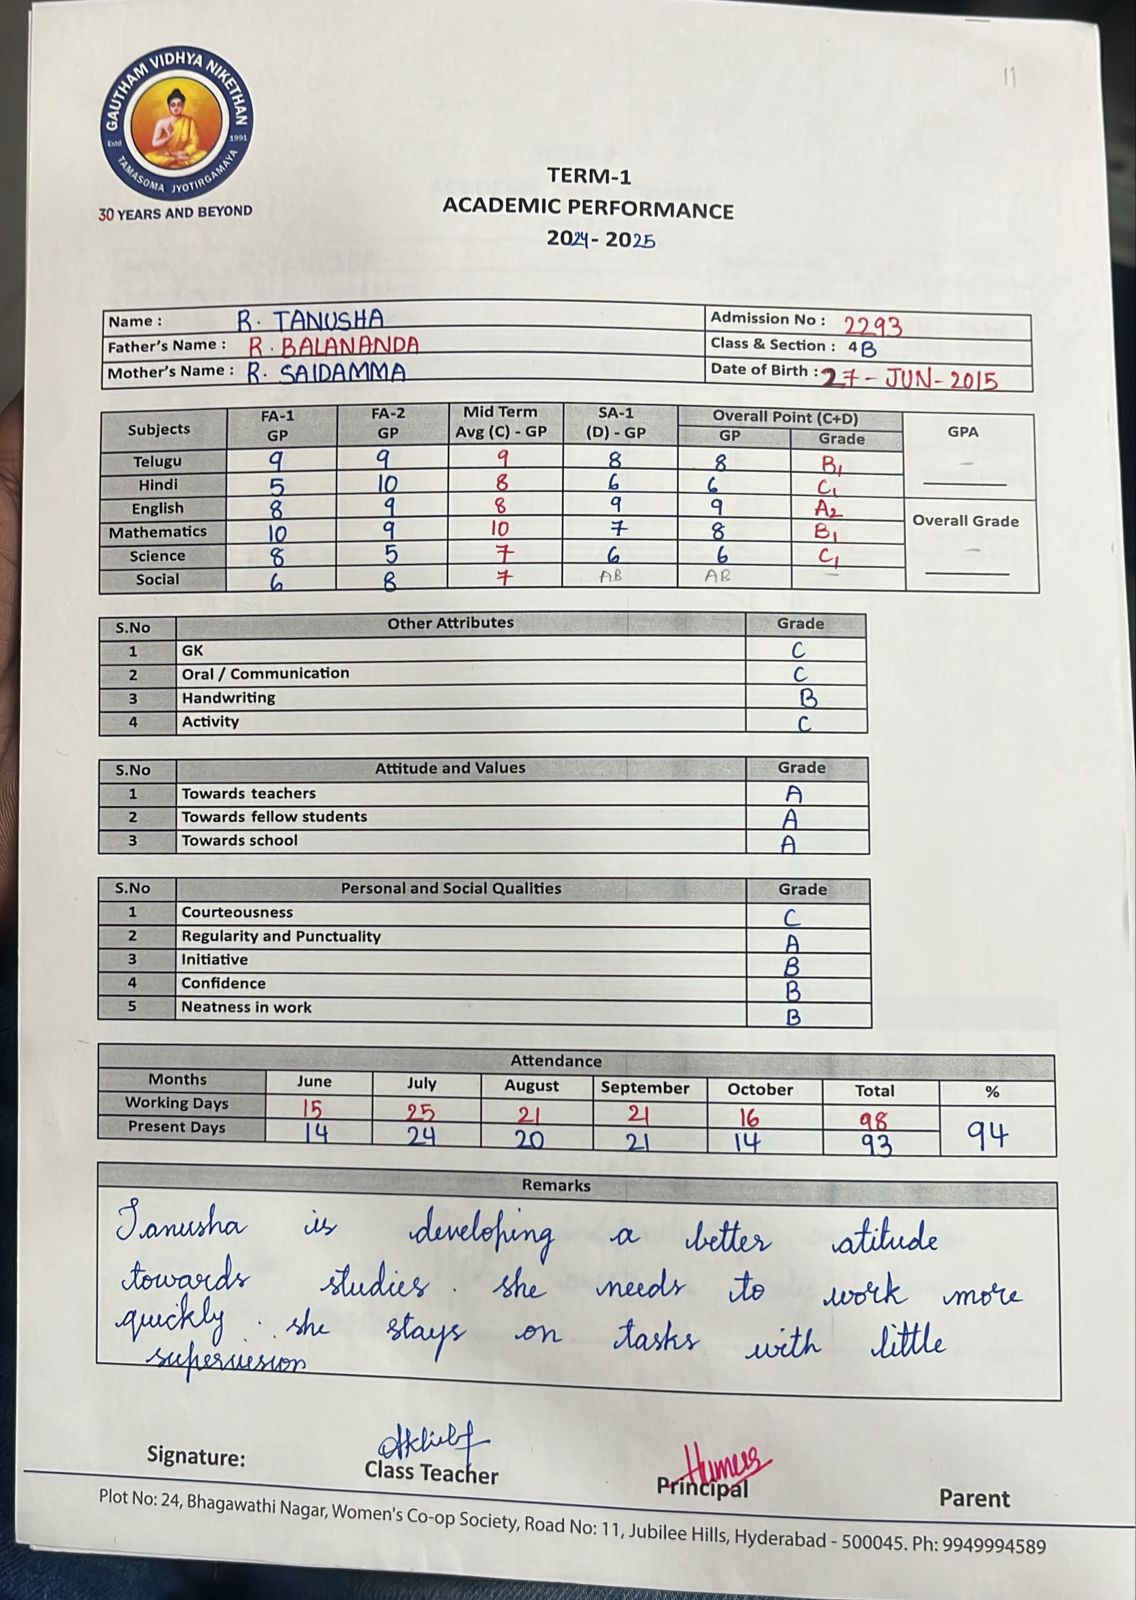 GAUTHAM VIDHYA NIKETHAN
Estd 1991
TAMASOMA JYOTIRGAMAYA
30 YEARS AND BEYOND
11
TERM-1
ACADEMIC PERFORMANCE
2024- 2025
Name : R. TANUSHA Admission No : 2293
Father's Name : R. BALANANDA Class & Section : 4B
Mother's Name : R. SAIDAMMA Date of Birth : 27-JUN-2015
Subjects FA-1 GP FA-2 GP Mid Term Avg (C) - GP SA-1 (D) - GP Overall Point (C+D) GP Grade GPA
Telugu 9 9 9 8 8 B1 –
Hindi 5 10 8 6 6 C1
English 8 9 8 9 9 A2
Mathematics 10 9 10 7 8 B1 Overall Grade
Science 8 5 7 6 6 C1 –
Social 6 8 7 AB AB –
S.No Other Attributes Grade
1 GK C
2 Oral / Communication C
3 Handwriting B
4 Activity C
S.No Attitude and Values Grade
1 Towards teachers A
2 Towards fellow students A
3 Towards school A
S.No Personal and Social Qualities Grade
1 Courteousness C
2 Regularity and Punctuality A
3 Initiative B
4 Confidence B
5 Neatness in work B
Attendance
Months June July August September October Total %
Working Days 15 25 21 21 16 98 94
Present Days 14 24 20 21 14 93
Remarks
Tanusha is developing a better atitude
towards studies. she needs to work more
quickly. she stays on tasks with little
supervesion
Signature: Class Teacher Principal Parent
Plot No: 24, Bhagawathi Nagar, Women's Co-op Society, Road No: 11, Jubilee Hills, Hyderabad - 500045. Ph: 9949994589